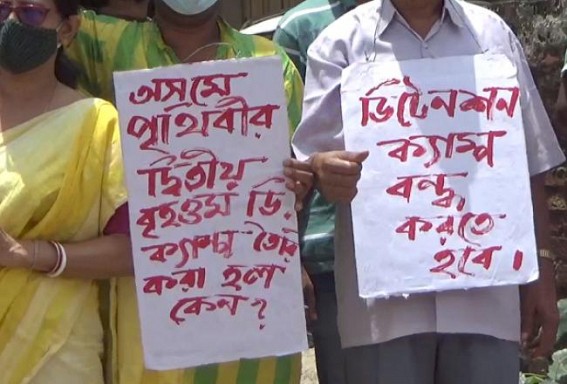 অসমে
পৃথিবীর
দ্বিতীয়
বৃহত্তম ডি.
ক্যাম্প তৈরি
করা হল
কেন?
ডিটেনশন
ক্যাম্প
বন্ধ
করতে
হবে।